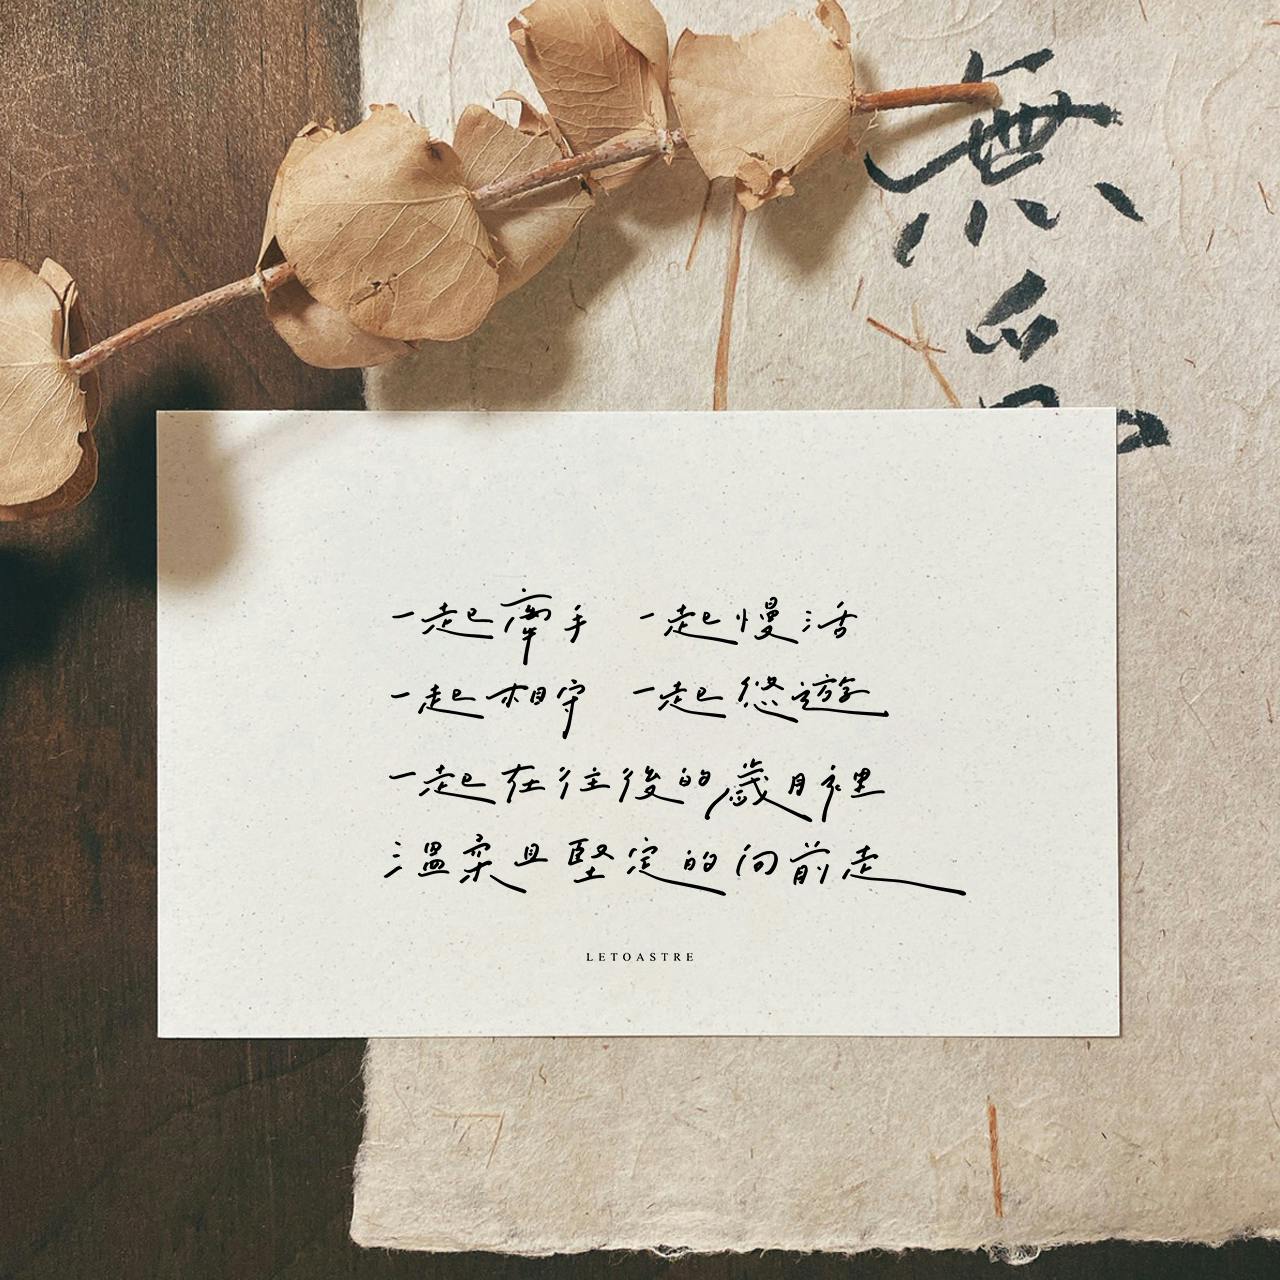 無
一起牽手 一起慢活
一起相守 一起悠遊
一起在往後的歲月裡
溫柔且堅定的向前走
LETOASTRE